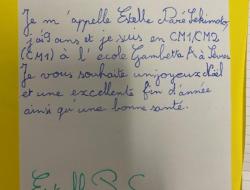 Je m'appelle Estelle
j'ai 9 ans et je suis en CM1/CM2
(CM1) à l'école Gambetta A à
Je vous souhaite un joyeux Noël
et une excellente fin d'année
ainsi qu'une bonne santé.